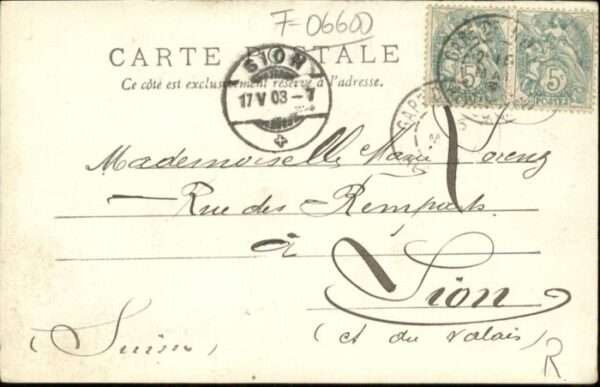 F-06600
CARTE POSTALE
Ce côté est exclusivement réservé à l'adresse.
SION
17 V 03 - 7
5c 5c
POSTES POSTES
Mademoiselle Marie Lorenz
Rue des Remparts
à
Sion
(Ct du Valais)
(Suisse)
R